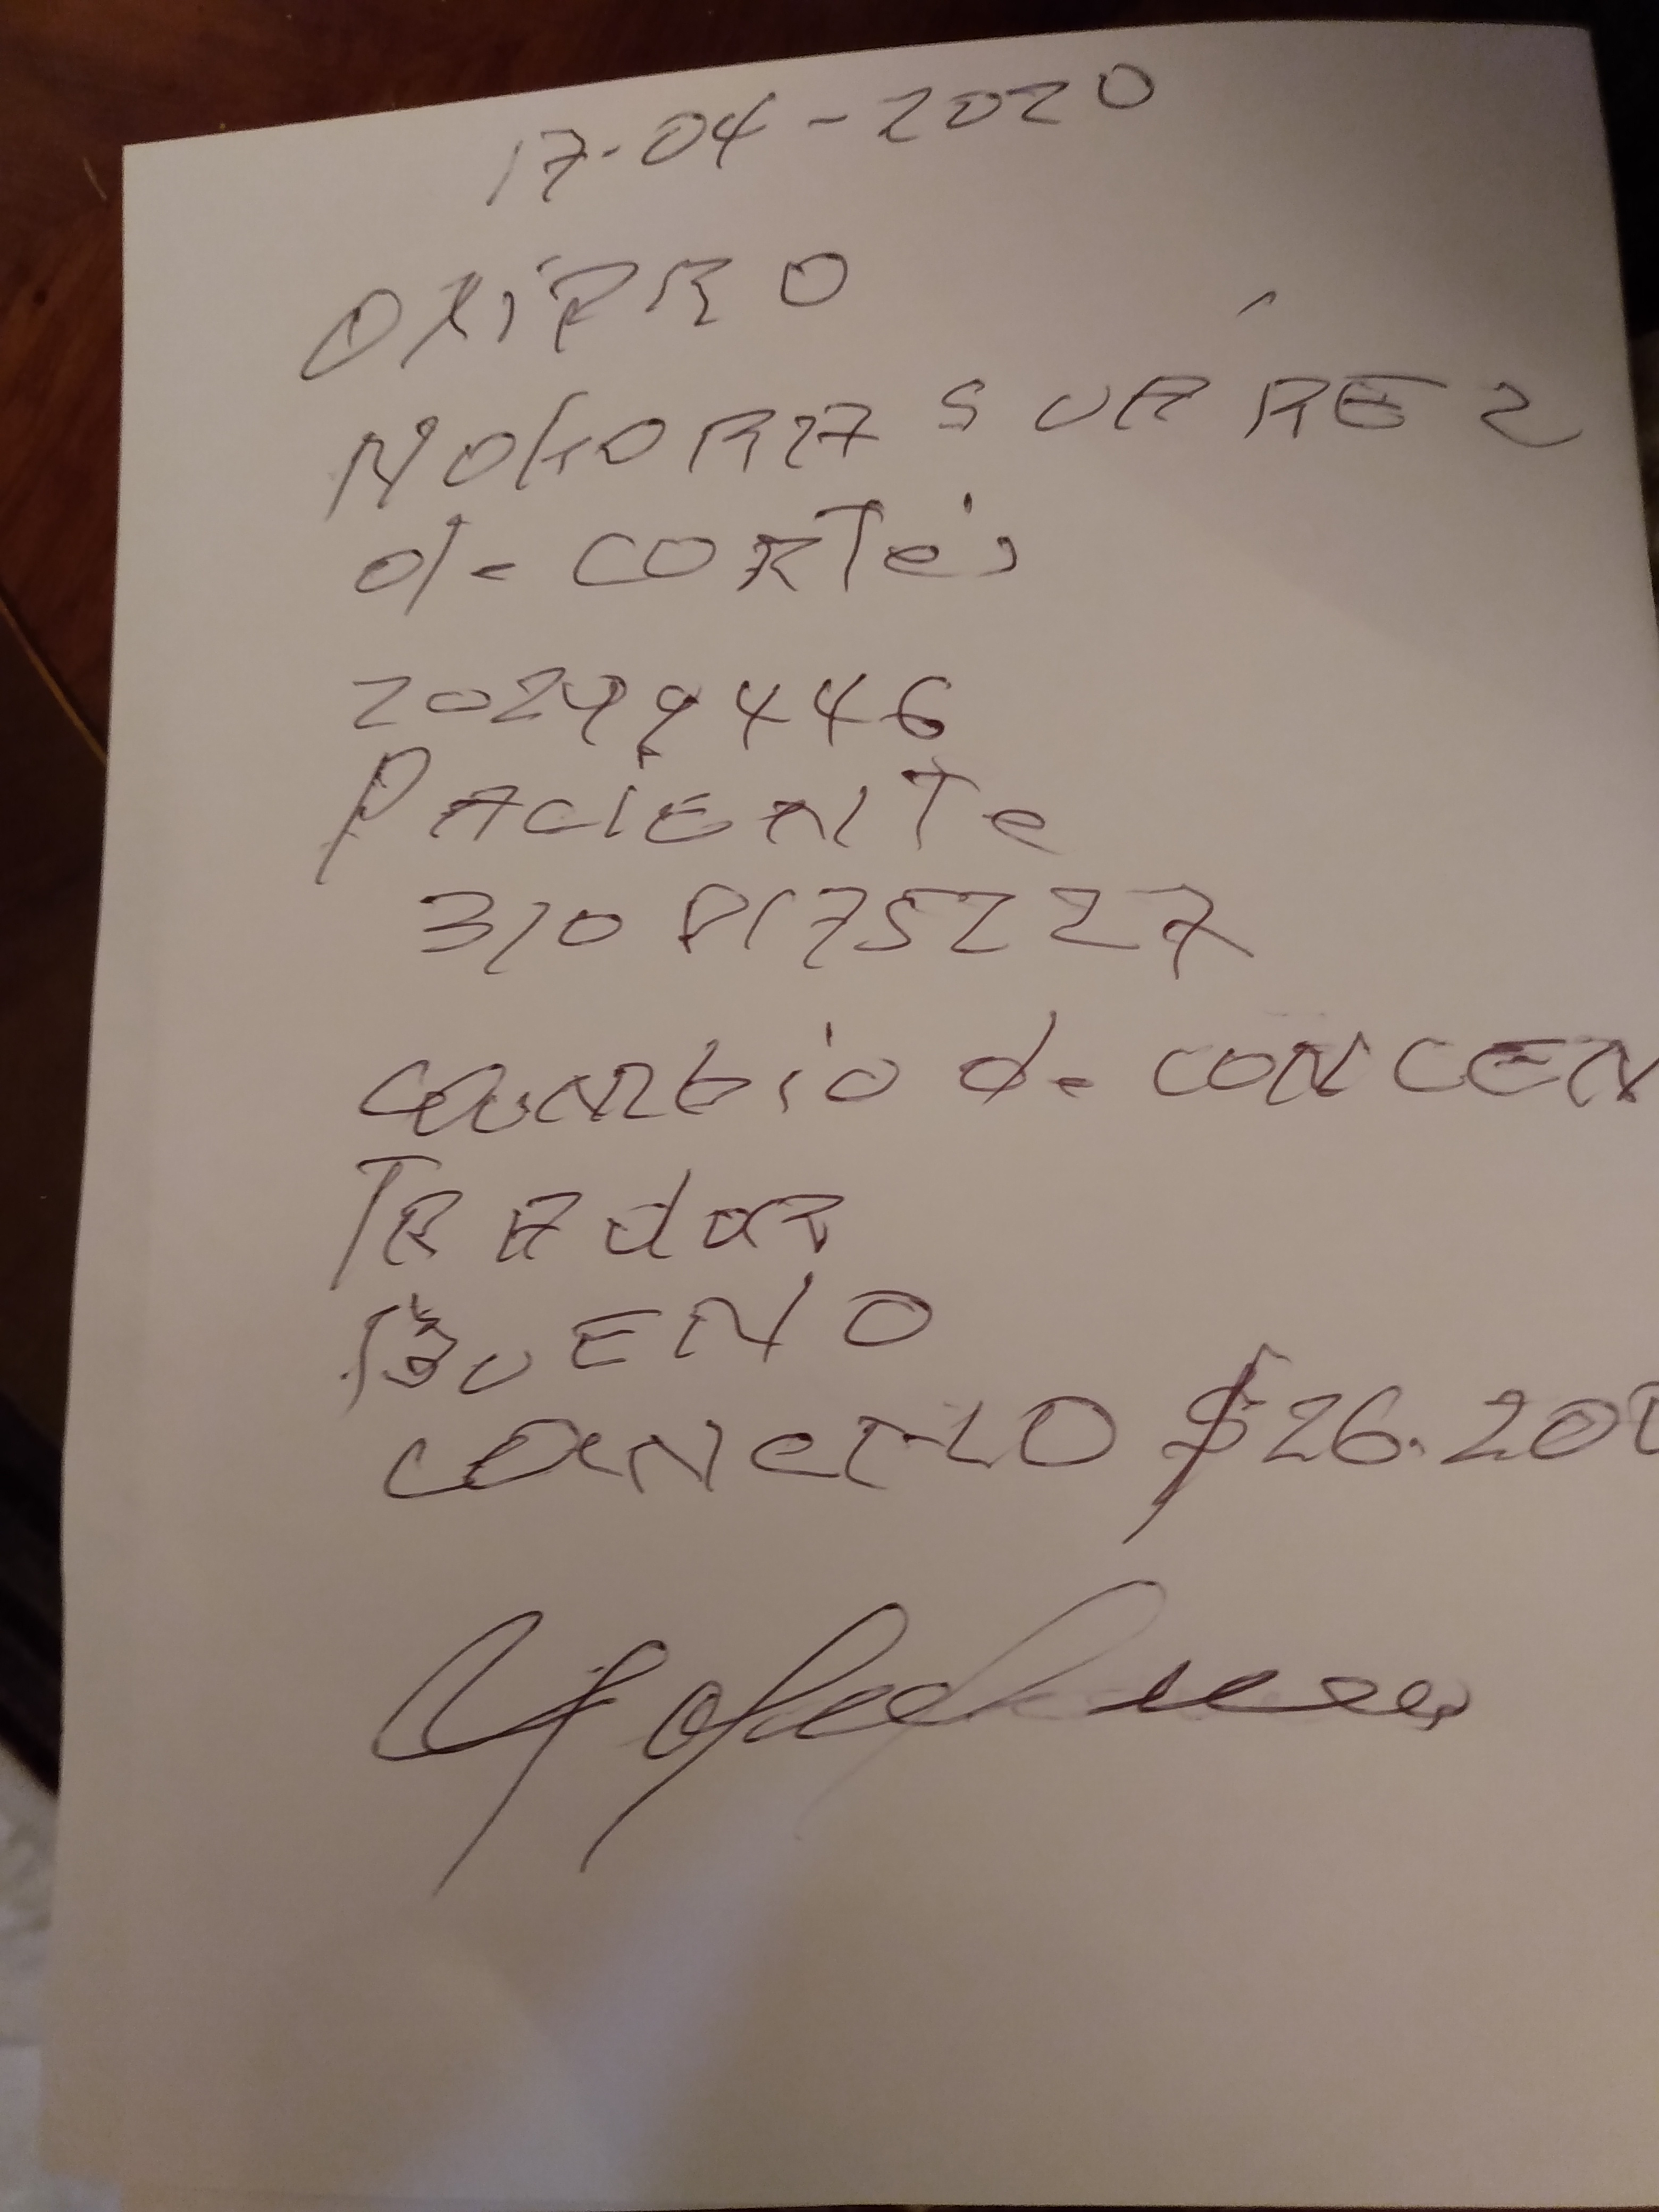 17-04-2020
OXiPRO
SUAREZ
de CORTés
20299446
PACiENTe
310 8175227
cambio de CONCEN
TRAdOR
BUENO
CANCELO $26.200